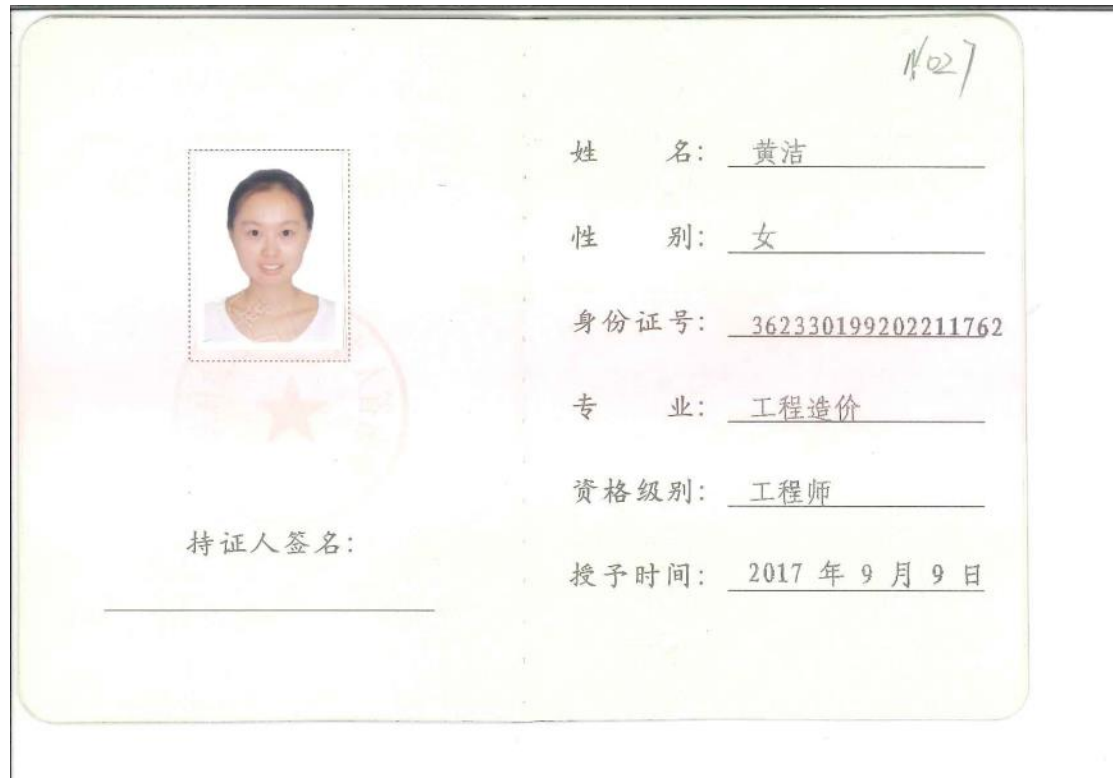 N027
姓 名： 黄洁
性 别： 女
身份证号： 362330199202211762
专 业： 工程造价
资格级别： 工程师
持证人签名：
授予时间： 2017 年 9 月 9 日